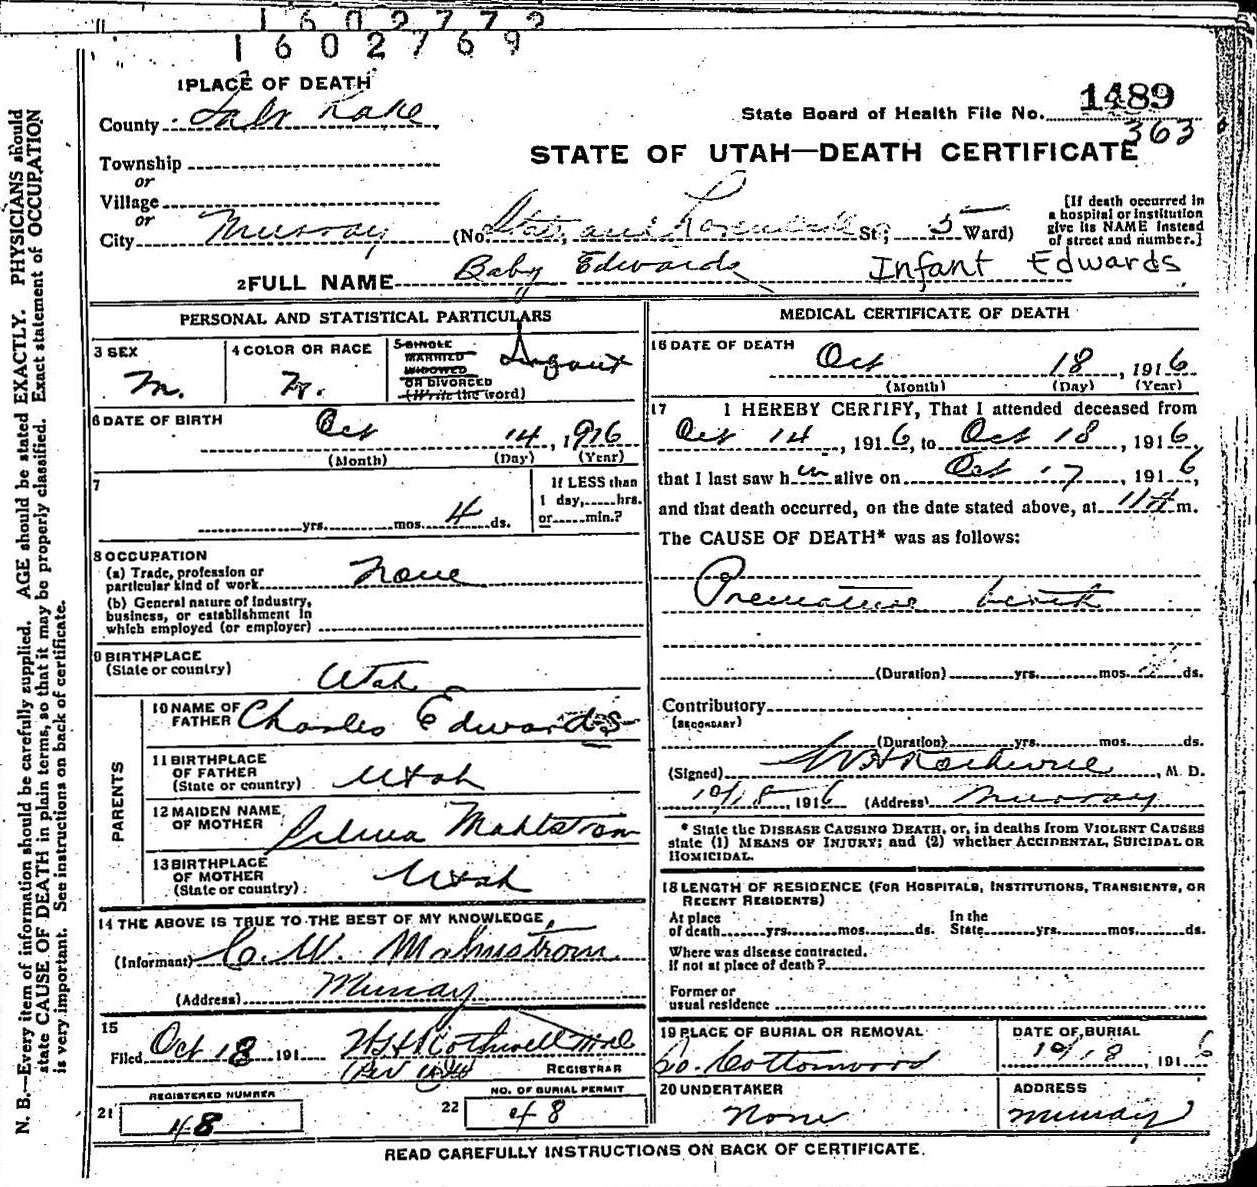 1602772
1602769
1 PLACE OF DEATH
County Salt Lake
State Board of Health File No. 1489
363
STATE OF UTAH—DEATH CERTIFICATE
Township
or
Village
or
City Murray (No. State and St.; 5 Ward)
[If death occurred in a hospital or institution give its NAME instead of street and number.]
2 FULL NAME Baby Edwards Infant Edwards
PERSONAL AND STATISTICAL PARTICULARS
3 SEX
M.
4 COLOR OR RACE
W.
5 SINGLE
MARRIED
WIDOWED
OR DIVORCED
(Write the word)
Infant
6 DATE OF BIRTH
Oct 14, 1916
(Month) (Day) (Year)
7
If LESS than
1 day, hrs.
or min.?
yrs. mos. 4 ds.
8 OCCUPATION
(a) Trade, profession or
particular kind of work None
(b) General nature of industry,
business, or establishment in
which employed (or employer)
9 BIRTHPLACE
(State or country)
Utah
PARENTS
10 NAME OF
FATHER Charles Edwards
11 BIRTHPLACE
OF FATHER
(State or country) Utah
12 MAIDEN NAME
OF MOTHER Selma Mahlstrom
13 BIRTHPLACE
OF MOTHER
(State or country) Utah
14 THE ABOVE IS TRUE TO THE BEST OF MY KNOWLEDGE,
(Informant) C. W. Malmstrom
(Address) Murray
15
Filed Oct 18 191
W H Rothwell MD
REGISTRAR
REGISTERED NUMBER
21 48
NO. OF BURIAL PERMIT
22 48
MEDICAL CERTIFICATE OF DEATH
16 DATE OF DEATH
Oct 18, 1916
(Month) (Day) (Year)
17 I HEREBY CERTIFY, That I attended deceased from
Oct 14, 1916, to Oct 18, 1916,
that I last saw him alive on Oct 17, 1916,
and that death occurred, on the date stated above, at 11 A m.
The CAUSE OF DEATH* was as follows:
Premature birth
(Duration) yrs. mos. ds.
Contributory
(SECONDARY)
(Duration) yrs. mos. ds.
(Signed) W H Rothwell, M. D.
10/18, 1916 (Address) Murray
* State the DISEASE CAUSING DEATH, or, in deaths from VIOLENT CAUSES
state (1) MEANS OF INJURY; and (2) whether ACCIDENTAL, SUICIDAL OR
HOMICIDAL.
18 LENGTH OF RESIDENCE (FOR HOSPITALS, INSTITUTIONS, TRANSIENTS, OR
RECENT RESIDENTS)
At place
of death yrs. mos. ds.
In the
State yrs. mos. ds.
Where was disease contracted.
if not at place of death?
Former or
usual residence
19 PLACE OF BURIAL OR REMOVAL
So. Cottonwood
DATE OF BURIAL
10/18, 1916
20 UNDERTAKER
None
ADDRESS
Murray
READ CAREFULLY INSTRUCTIONS ON BACK OF CERTIFICATE.
N. B.—Every item of information should be carefully supplied. AGE should be stated EXACTLY. PHYSICIANS should
state CAUSE OF DEATH in plain terms, so that it may be properly classified. Exact statement of OCCUPATION
is very important. See instructions on back of certificate.